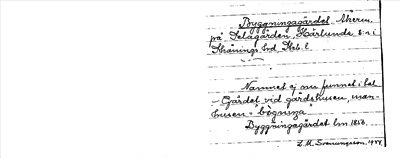 Byggningagärdet Åkern,
på Delagården, Härlunda s:n i
Skånings hd Skbl.
Namnet ej nu funnet i bet
- Gärdet vid gårdshusen, man-
husen = "bögninga"
Byggningagärdet lm 1810.
Z.M. Svenungsson, 1944